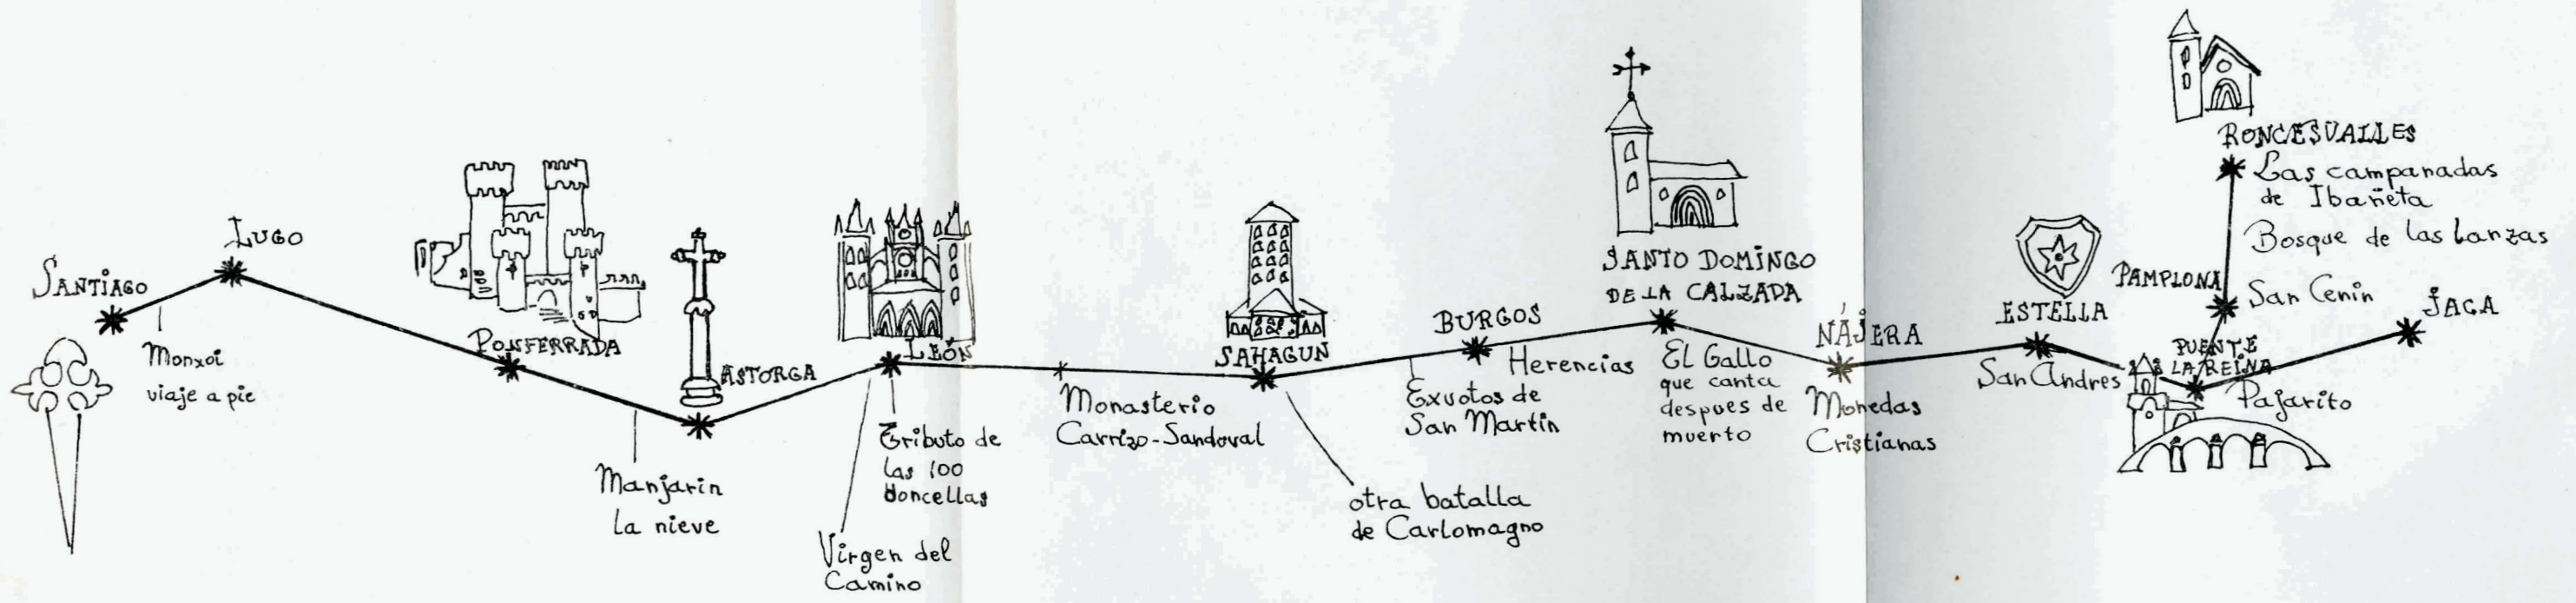 SANTIAGO
Monxoi
viaje a pie
LUGO
PONFERRADA
Manjarin
La nieve
ASTORGA
LEÓN
Tributo de
las 100
doncellas
Virgen del
Camino
Monasterio
Carrizo-Sandoval
SAHAGUN
otra batalla
de Carlomagno
Exvotos de
San Martin
BURGOS
Herencias
SANTO DOMINGO
DE LA CALZADA
El Gallo
que canta
despues de
muerto
NÁJERA
Monedas
Cristianas
ESTELLA
San Andres
PUENTE
LA REINA
Pajarito
PAMPLONA
San Cenin
RONCESVALLES
Las campanadas
de Ibañeta
Bosque de las lanzas
JACA